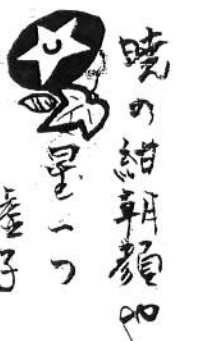 暁の紺朝顔や
星一つ
虚子